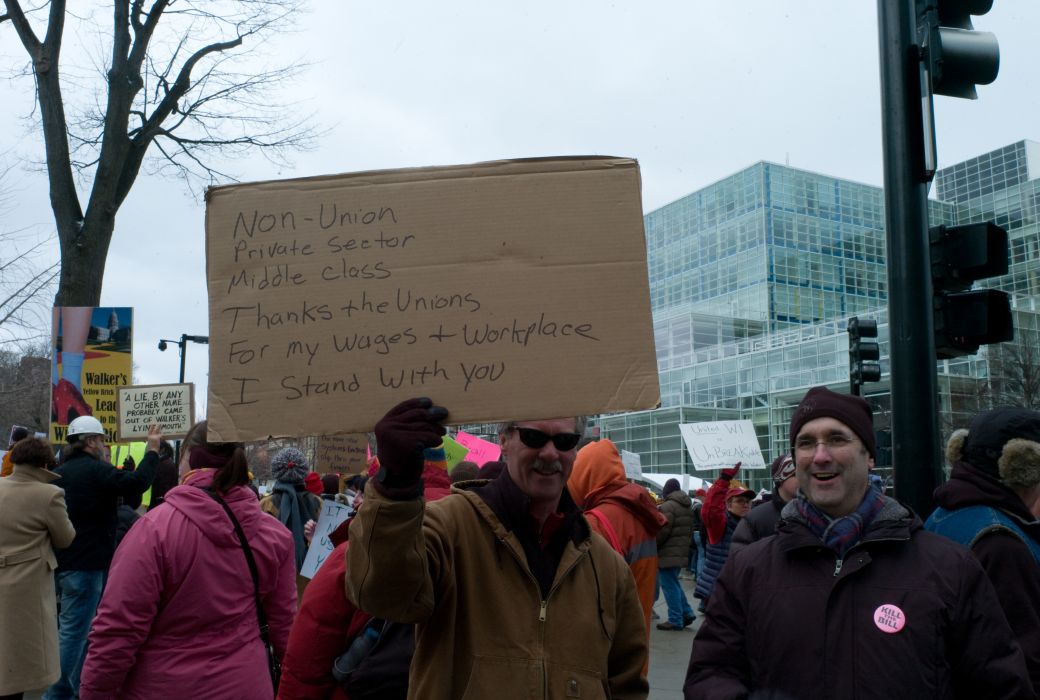 Non-Union
Private Sector
Middle Class
Thanks the Unions
For my Wages + Workplace
I Stand With you
Walker's
Yellow Brick
Lead
to the
"A LIE, BY ANY
OTHER NAME
PROBABLY CAME
OUT OF WALKER'S
LYING MOUTH"
United WI
is
UnBREAKable
KILL
THE
BILL